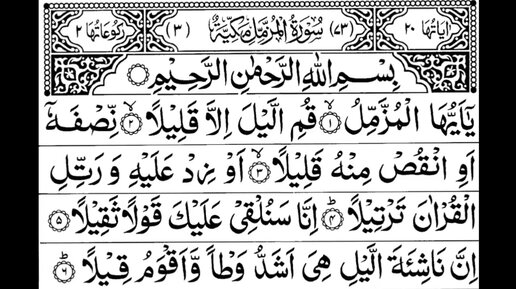 اٰیَاتُهَا ٢٠ (٧٣) سُوْرَةُ الْمُزَّمِّلِ مَكِّیَّةٌ (٣) رُكُوْعَاتُهَا ٢
بِسْمِ اللّٰهِ الرَّحْمٰنِ الرَّحِیْمِ
یٰۤاَیُّهَا الْمُزَّمِّلُ ۙ‏﴿١﴾ قُمِ الَّیْلَ اِلَّا قَلِیْلًا ۙ‏﴿٢﴾ نِّصْفَهٗۤ
اَوِ انْقُصْ مِنْهُ قَلِیْلًا ۙ‏﴿٣﴾ اَوْ زِدْ عَلَیْهِ وَ رَتِّلِ
الْقُرْاٰنَ تَرْتِیْلًا ؕ‏﴿٤﴾ اِنَّا سَنُلْقِیْ عَلَیْكَ قَوْلًا ثَقِیْلًا ﴿٥﴾
اِنَّ نَاشِئَةَ الَّیْلِ هِیَ اَشَدُّ وَطْاً وَّاَقْوَمُ قِیْلًا ؕ‏﴿٦﴾